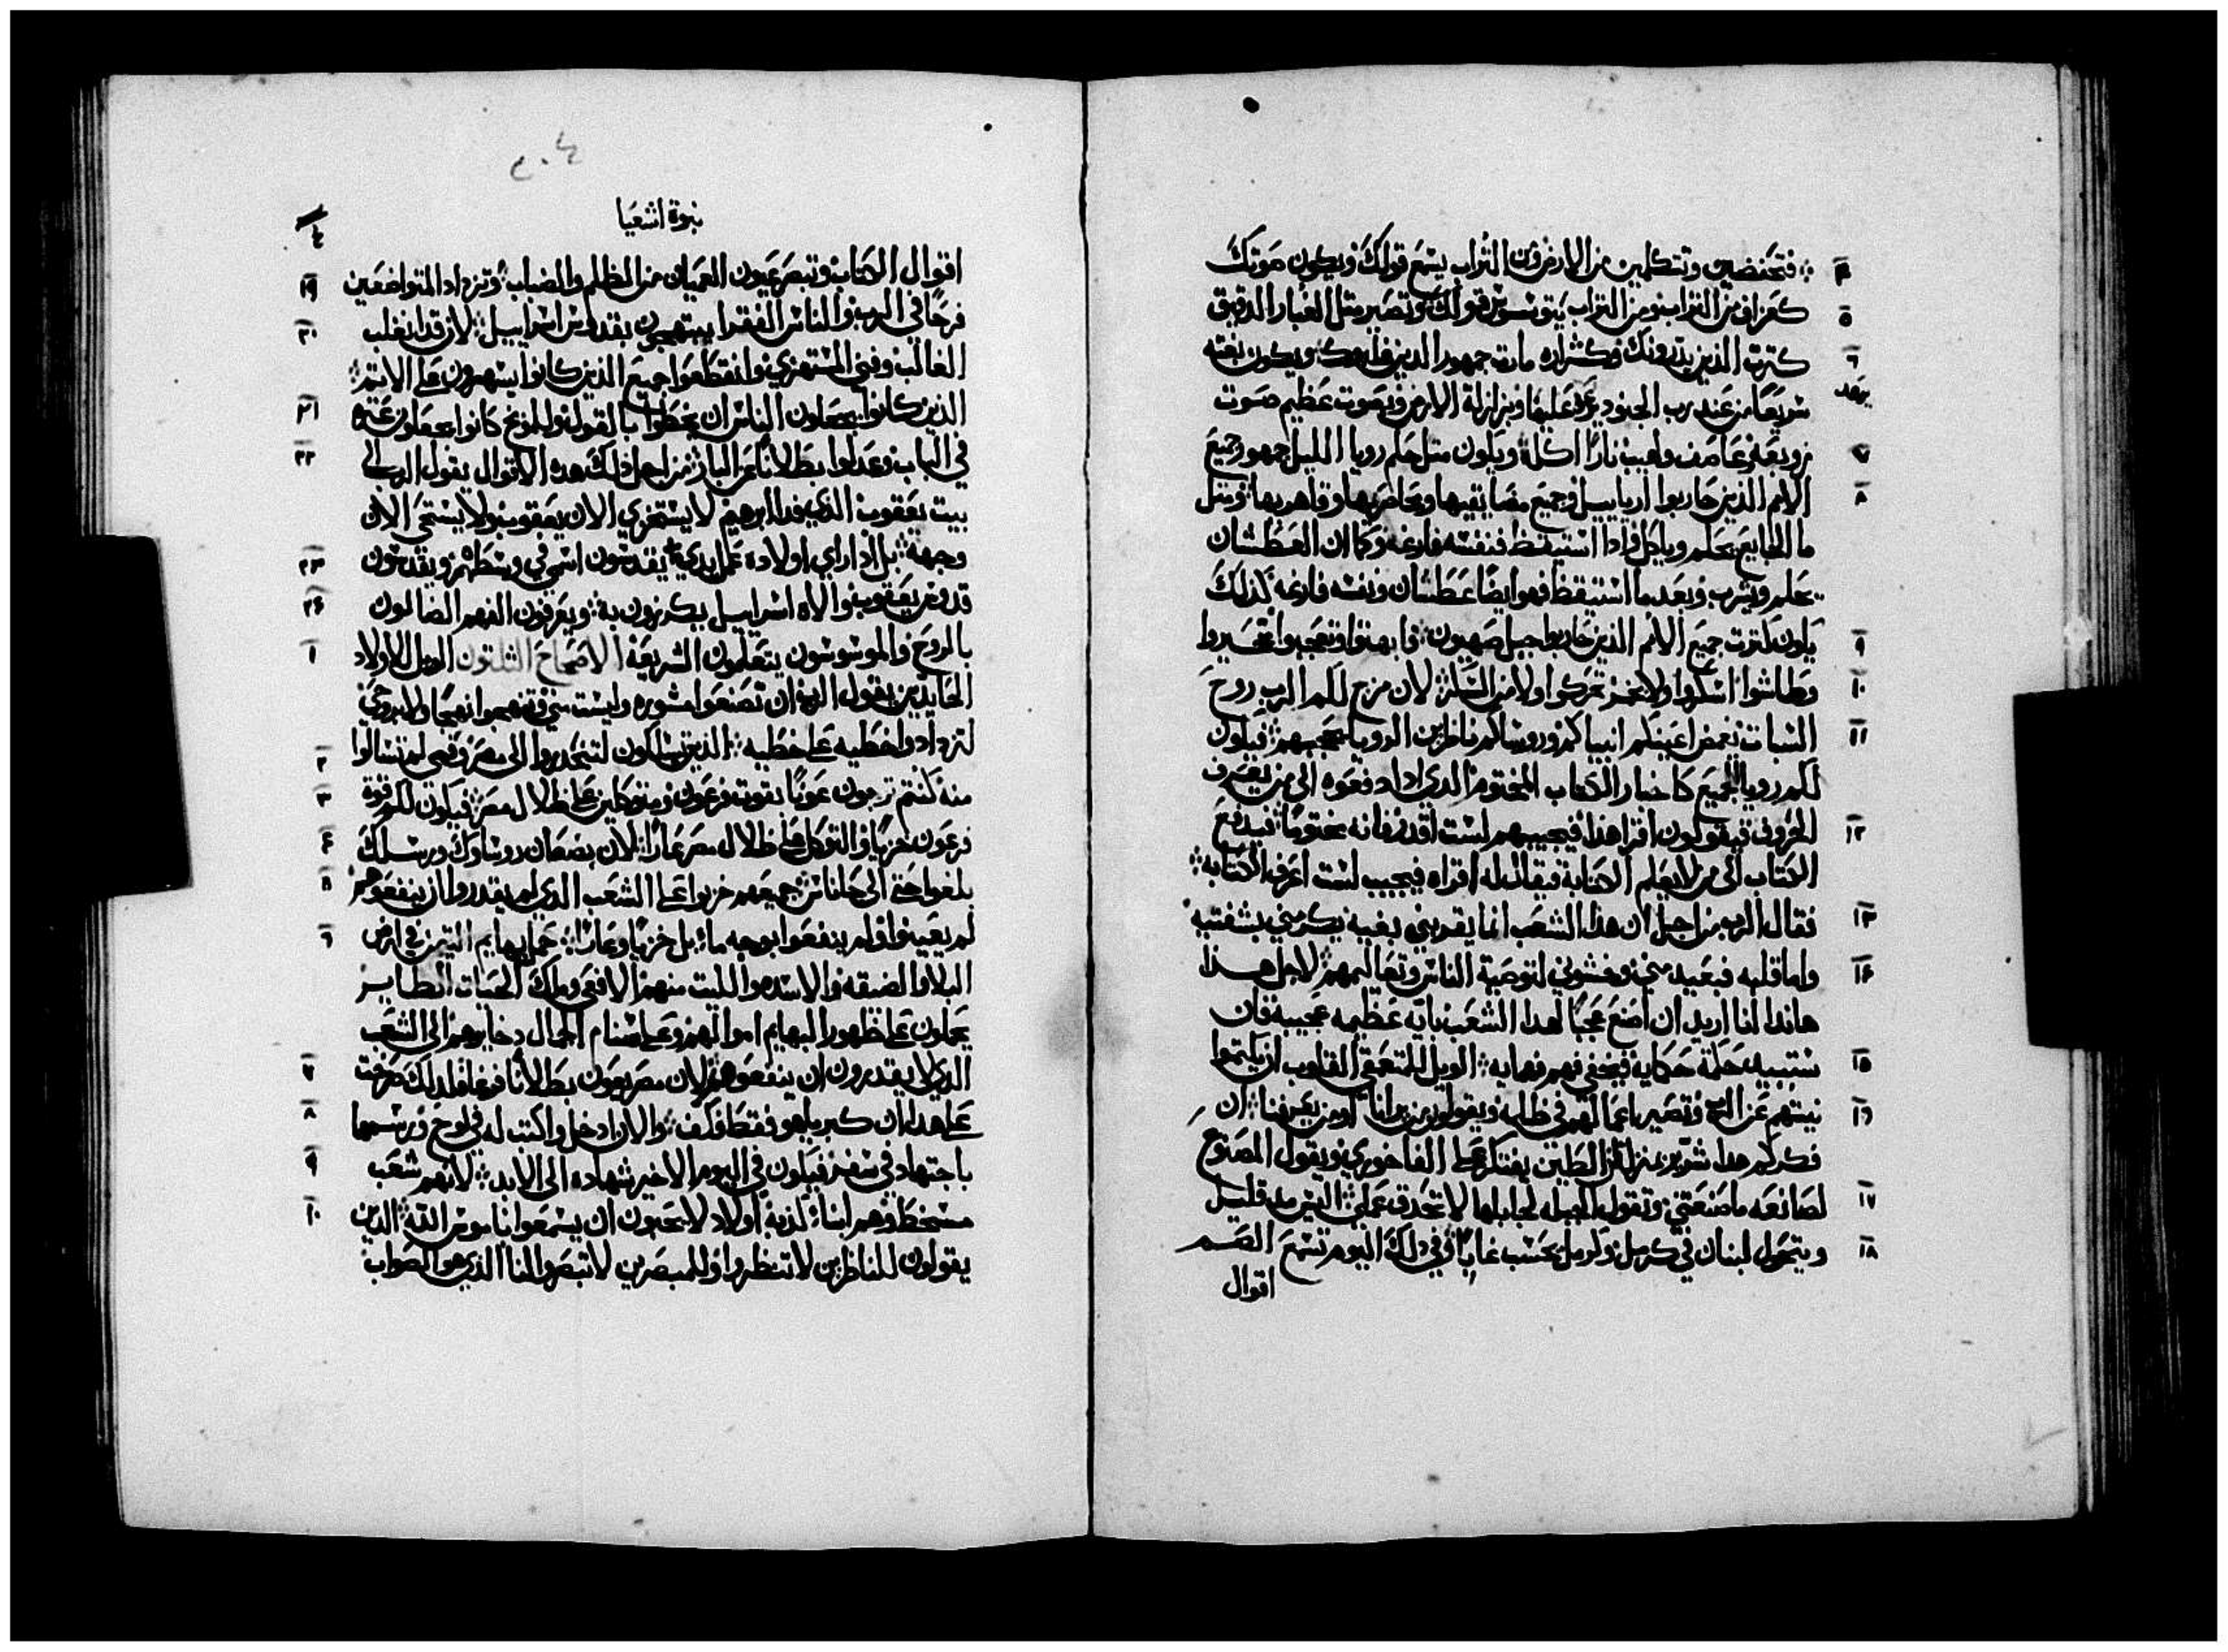 فتخفضين وتتكلمين من الارض ومن التراب يسمع قولك ويكون صوتك
كعراف من التراب ومن التراب يتوسوس قولك وتصير مثل الغبار الدقيق
كثرت الذين يذرونك وكشراره مارت جمهور الذين عليك ويكون بغته
يرعد
سريعًا من عند رب الجنود برعد عليها وبزلزلة الارض وبصوت عظيم صوت
زوبعه وعاصف ولهيب نارًا اكله ويكون مثل حلم رويا الليل جمهور جميع
الامم الذين حاربوا ارياييل وجميع مضايقيها ومحاصريها وقاهريها ومثل
ما الجايع يحلم وياكل واذا استيقظ فنفسه فارغه وكما ان العطشان
يحلم ويشرب وبعدما استيقظ فهو ايضًا عطشان ونفسه فارغه كذلك
يكون كثرت جميع الامم الذين حاربوا جبل صهيون فابهتوا وتعجبوا تحيروا
وطاشوا اسكروا ولا بخمر تحركوا ولا من السكر لان مزج لكم الرب روح
السبات يغمض اعينكم انبياكم وروساكم ناظرين الرويا يحجبهم فيكون
لكم رويا الجميع كاخبار الكتاب المختوم الذي اذا دفعوه الى من يعرف
الحروف فيقولون اقرا هذا فيجيبهم لست اقدر فانه مختومًا فيدفع
الكتاب الى من لا يعلم الكتابة فيقال له اقراه فيجيب لست اعرف الكتابه
فقال الرب من اجل ان هذا الشعب انما يقربني بفيه يكرمني بشفتيه
واما قلبه فبعيد مني وخشوني لتوصية الناس وتعاليمهم لاجل هذا
هاندا انا اريد ان اصنع عجبًا لهذا الشعب باية عظيمه عجيبه فان
ستبيد حكمة حكمايه فيخفي فهم فهمايه الويل للمتعمقي القلوب ان يكتموا
نيتهم عن الرب وتصير اعمالهم في ظلمه ويقولون من يرانا اومن يعرفنا ان
فكركم هذا شرير بمنزلة ان الطين يفتكر على الفاخوري ويقول المصنوع
لصانعه ما صنعتني وتقول الجبله لجابلها لا تحذق عملي اليس بعد قليل
ويتحول لبنان في كرمل وكرمل يحسب غابًا وفي ذلك اليوم تسمع الصم
اقوال
نبوة اشعيا
اقوال الكتاب وتبصر عيون العميان من الظلم والضباب وتزداد المتواضعين
فرحًا في الرب والناس الفقرا يبتهجون بقدوس اسراييل لان قد انغلب
الغالب وفني المستهزي وانقطعوا جميع الذين كانوا يسهرون على الاثم
الذين كانوا يجعلون الناس ان يخطوا بالقول وللموبخ كانوا يجعلون عثره
في الباب وعدلوا بطلانًا عن البار من اجل ذلك هذه الاقوال يقول الرب الى
بيت يعقوب الذي فدا ابرهيم لا يستخزي الان يعقوب ولا يستحي الان
وجهه بل اذا راي اولاده عمل يدي يقدسون اسمي في وسطهم ويقدسون
قدوس يعقوب والاه اسراييل يكرزون به ويعرفون الفهم الضالون
بالروح والموسوسون يتعلمون الشريعة الاصحاح الثلثون الويل للاولاد
الحايدين يقول الرب ان تصنعوا مشوره وليست مني وتنهجوا نهجًا ولا بروحي
لتزدادوا خطيه على خطيه الذين تسلكون لتنحدروا الى مصر وفمي لم تسالوا
منه كنتم ترجون عونًا بقوت فرعون ومتوكلين على ظلال مصر فيكون لكم قوة
فرعون خزيًا والتوكل على ظلال مصر عارًا لان بصعان روساوك ورسلك
بلغوا حتى الى حاناس جميعهم خزيوا على الشعب الذي لم يقدروا ان ينفعوهم
لم يعينوا ولم ينفعوا بوجه ما بل خزيًا وعارًا حمل بهايم التيمن في ارض
البلا والضيقه والاسد والليث منهم الافعى وملك الحيات الطاير
يحملون على ظهور البهايم اموالهم وعلى اسنام الجمال دخايرهم الى الشعب
الذي لا يقدرون ان ينفعوهم لان مصر يعون بطلانًا فيغافا لدلك صرخت
على هدا ان كبرياهو فقط فكف والان ادخل واكتب له في لوح وترسمها
باجتهاد في سفر فيكون في اليوم الاخير شهاده الى الابد لانهم شعب
مسخط وهم ابنا كذبة اولاد لا يحبون ان يسمعوا ناموس الله الذين
يقولون للناظرين لا تنظروا وللمبصرين لا تبصروا لنا الذي هو الصواب